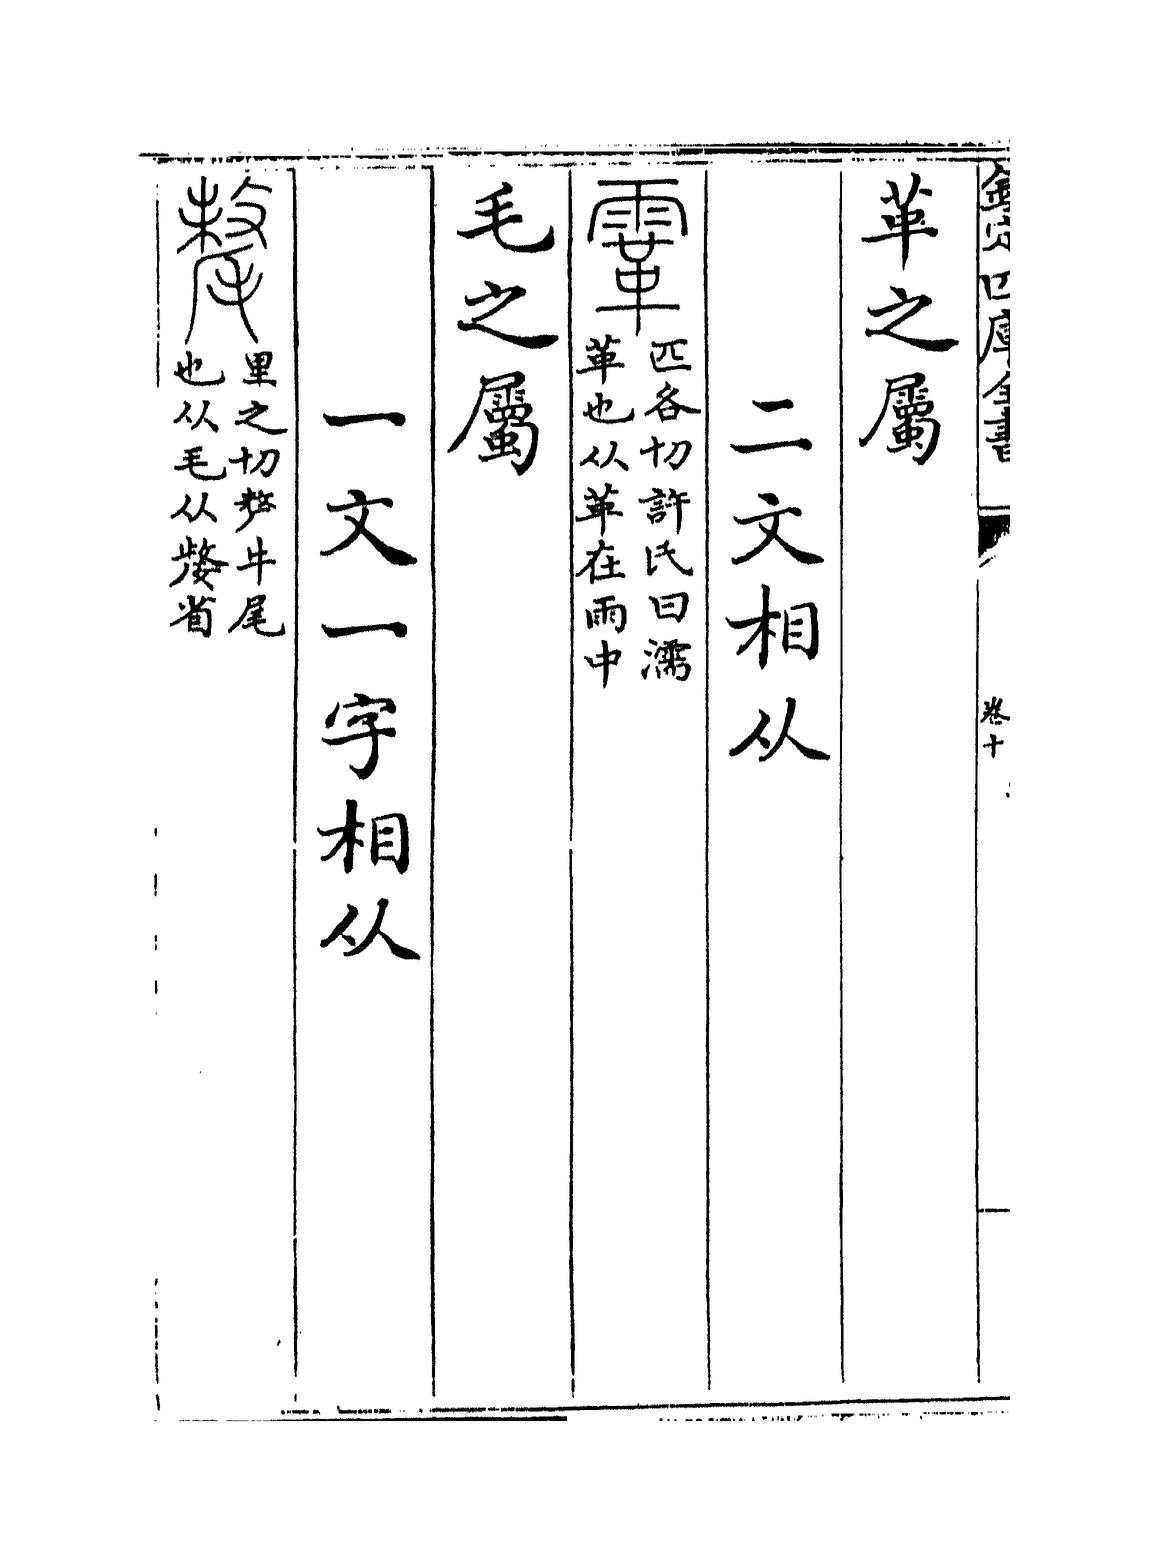 欽定四庫全書
卷十
革之屬
二文相从
䨣
匹各切許氏曰濡
革也从革在雨中
毛之屬
一文一字相从
氂
里之切犛牛尾
也从毛从省